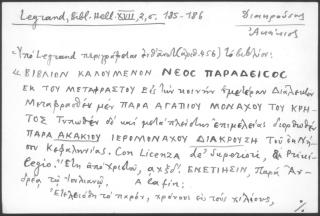 Legrand, Bibl. Hell. XVII, 2, σ. 185-186
Διακρούσης
Ἀκάκιος
Ὑπὸ Legrand περιγράφεται (ἀριθ. 456) τὸ βιβλίον:
« ΒΙΒΛΙΟΝ ΚΑΛΟΥΜΕΝΟΝ ΝΕΟΣ ΠΑΡΑΔΕΙΣΟΣ
ΕΚ ΤΟΥ ΜΕΤΑΦΡΑΣΤΟΥ Εἰς τὴν κοινὴν ἡμετέραν Διάλεκτον
Μεταφρασθὲν μὲν ΠΑΡΑ ΑΓΑΠΙΟΥ ΜΟΝΑΧΟΥ ΤΟΥ ΚΡΗ-
ΤΟΣ Τυπωθὲν δὲ καὶ μετὰ πλείστης ἐπιμελείας διορθωθὲν
ΠΑΡΑ ΑΚΑΚΙΟΥ ΙΕΡΟΜΟΝΑΧΟΥ ΔΙΑΚΡΟΥΣΗ Τοῦ ἐκ Νή-
σου Κεφαληνίας. Con Licenza de' Superiori, & Privi-
legio. Ἔτη ἀπὸ Χριστοῦ, αχξδ'. ΕΝΕΤΙΗΣΙΝ, Παρὰ Ἀν-
δρέᾳ τῷ Ἰουλιανῷ. A la fin:
Ἐτελειώθη τὸ παρόν, χρόνους εἰς τοὺς χιλίους,